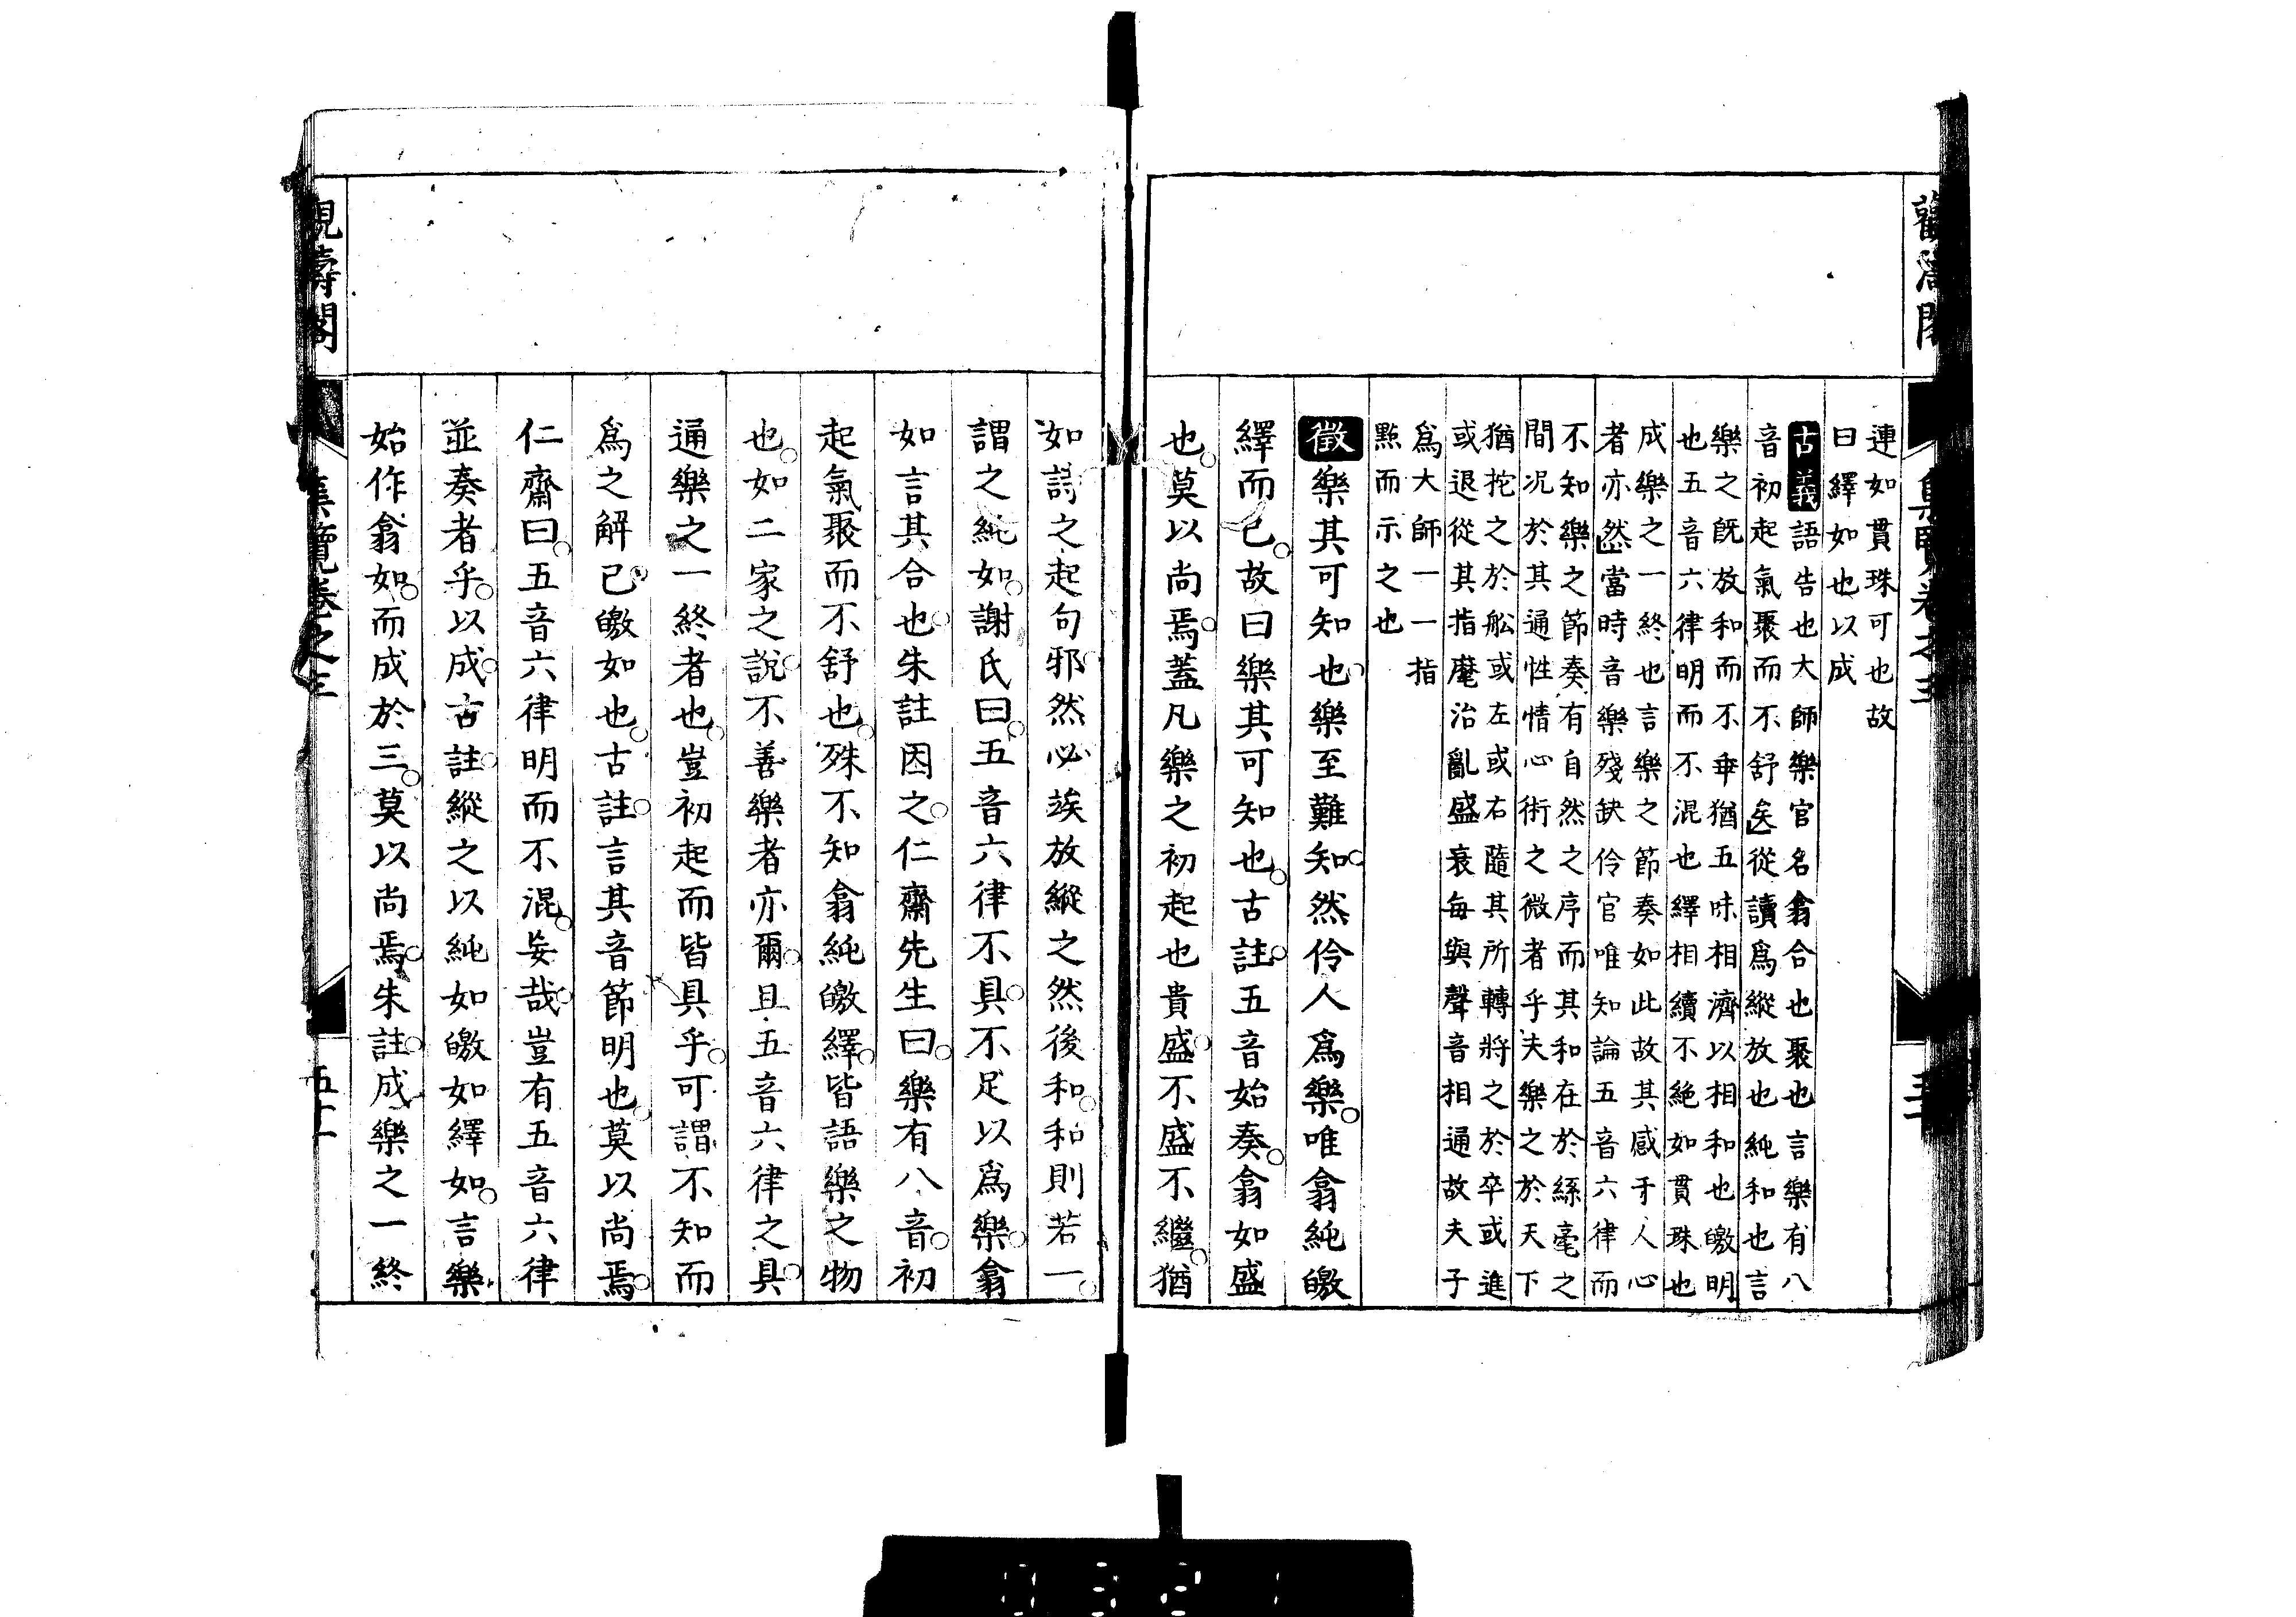 連如貫珠可也故
曰繹如也以成
古義語告也大師樂官名翕合也聚也言樂有八
音初起氣聚而不舒矣從讀爲縱放也純和也言
樂之旣放和而不乖猶五味相濟以相和也皦明
也五音六律明而不混也繹相續不絶如貫珠也
成樂之一終也言樂之節奏如此故其感于人心
者亦然當時音樂殘缺伶官唯知論五音六律而
不知樂之節奏有自然之序而其和在於絲毫之
間况於其通性情心術之微者乎夫樂之於天下
猶挖之於舩或左或右隨其所轉將之於卒或進
或退從其指麾治亂盛衰每與聲音相通故夫子
爲大師一一指
㸃而示之也
徵樂其可知也樂至難知然伶人爲樂唯翕純皦
繹而已故曰樂其可知也古註五音始奏翕如盛
也莫以尚焉蓋凡樂之初起也貴盛不盛不繼猶
如詩之起句邪然必竢放縱之然後和和則若一
謂之純如謝氏曰五音六律不具不足以爲樂翕
如言其合也朱註因之仁齋先生曰樂有八音初
起氣聚而不舒也殊不知翕純皦繹皆語樂之物
也如二家之說不善樂者亦爾且五音六律之具
通樂之一終者也豈初起而皆具乎可謂不知而
爲之解已皦如也古註言其音節明也莫以尚焉
仁齋曰五音六律明而不混妄哉豈有五音六律
並奏者乎以成古註縱之以純如皦如繹如言樂
始作翕如而成於三莫以尚焉朱註成樂之一終
集覽卷之三
0321